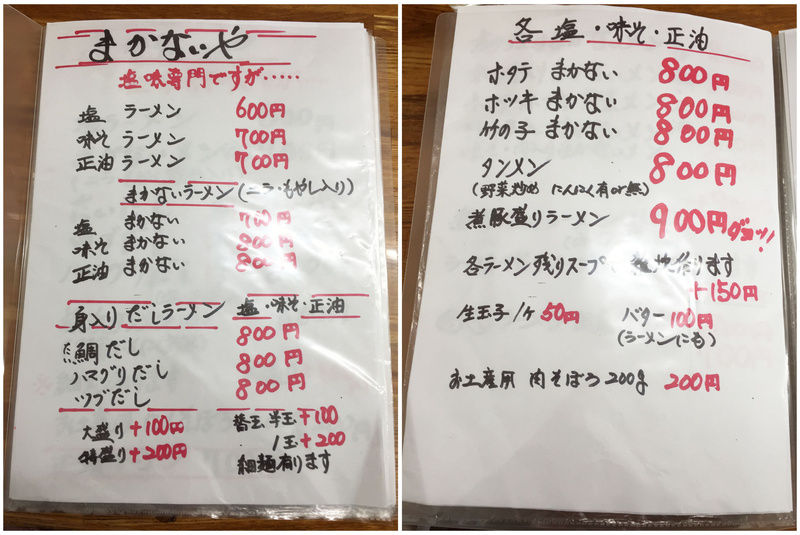 まかないや
塩味専門ですが・・・・・
塩 ラーメン 600円
味そ ラーメン 700円
正油 ラーメン 700円
まかないラーメン(ニラ・もやし入り)
塩 まかない 700円
味そ まかない 800円
正油 まかない 800円
身入りだしラーメン 塩・味そ・正油
鯛だし 800円
ハマグリだし 800円
ツブだし 800円
大盛り+100円
特盛り+200円
替玉 半玉+100
1玉+200
細麺有ります
各塩・味そ・正油
ホタテ まかない 800円
ホッキ まかない 800円
竹の子 まかない 800円
タンメン 800円
(野菜炒め にんにく有or無)
煮豚盛りラーメン 900円
各ラーメン残りスープで 作ります
+150円
生玉子1ヶ 50円
バター 100円
(ラーメンにも)
お土産用 肉そぼろ200g 200円